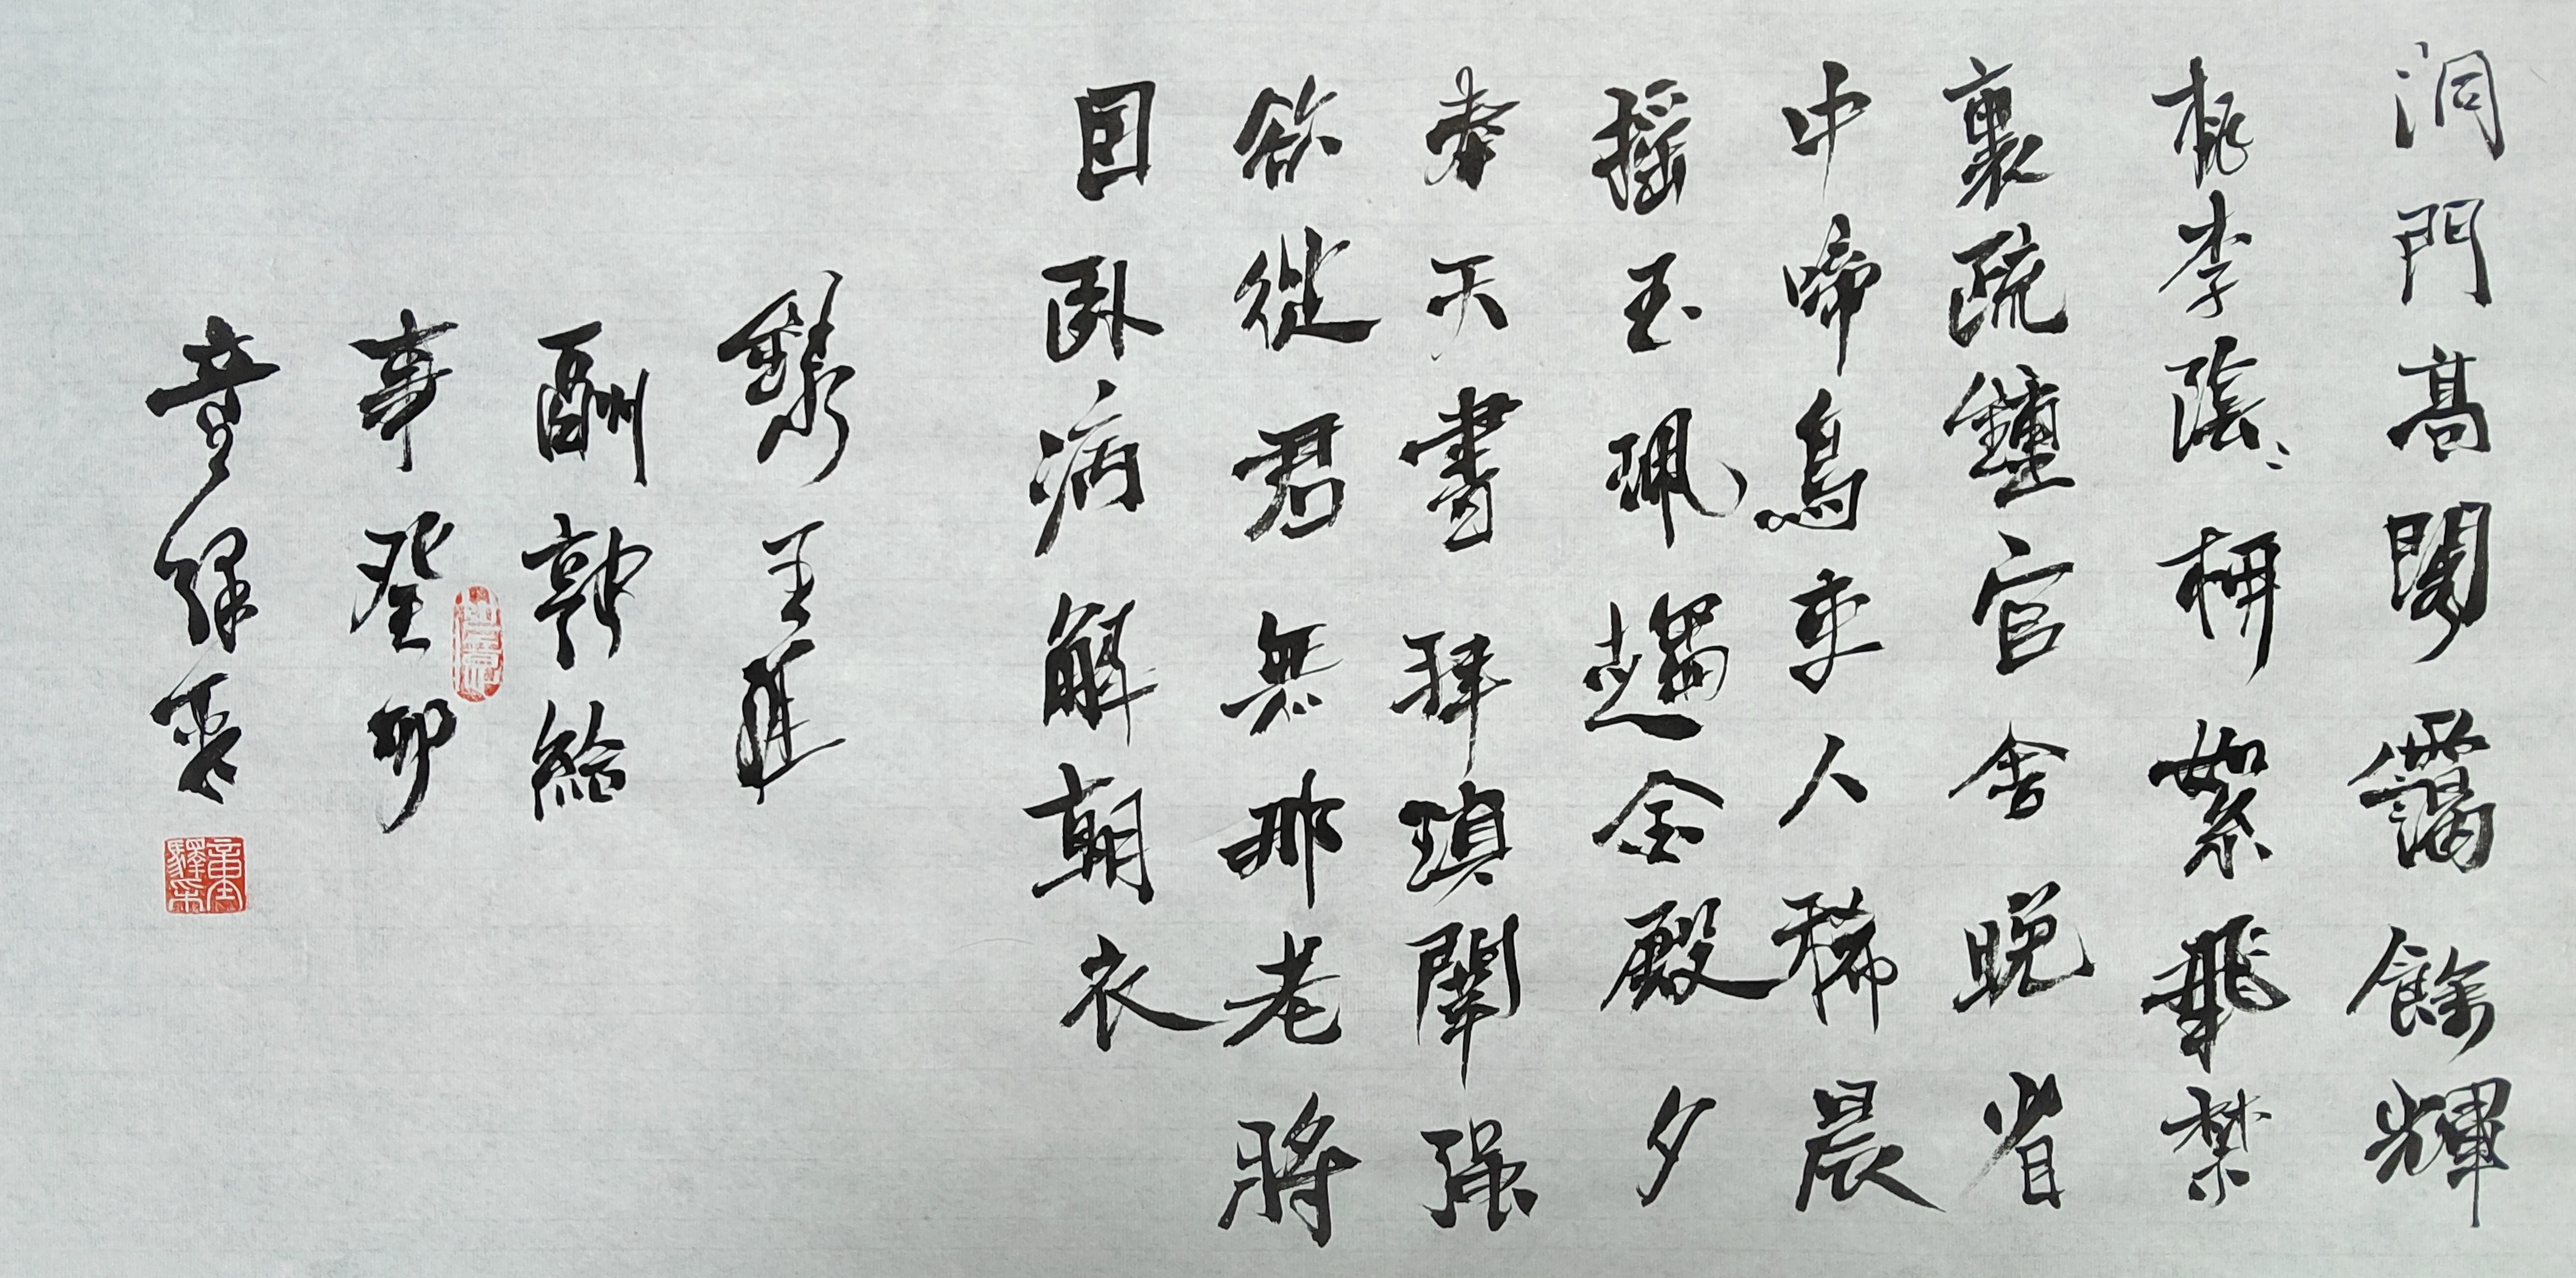 洞門高閣靄餘輝
桃李陰〻柳絮飛禁
裏疏鐘官舍晚省
中啼鳥吏人稀晨
摇玉珮趨金殿夕
奉天書拜瑣闈强
欲從君無那老將
因卧病解朝衣
錄王維
酬郭給
事癸卯
童驛采
童驛采